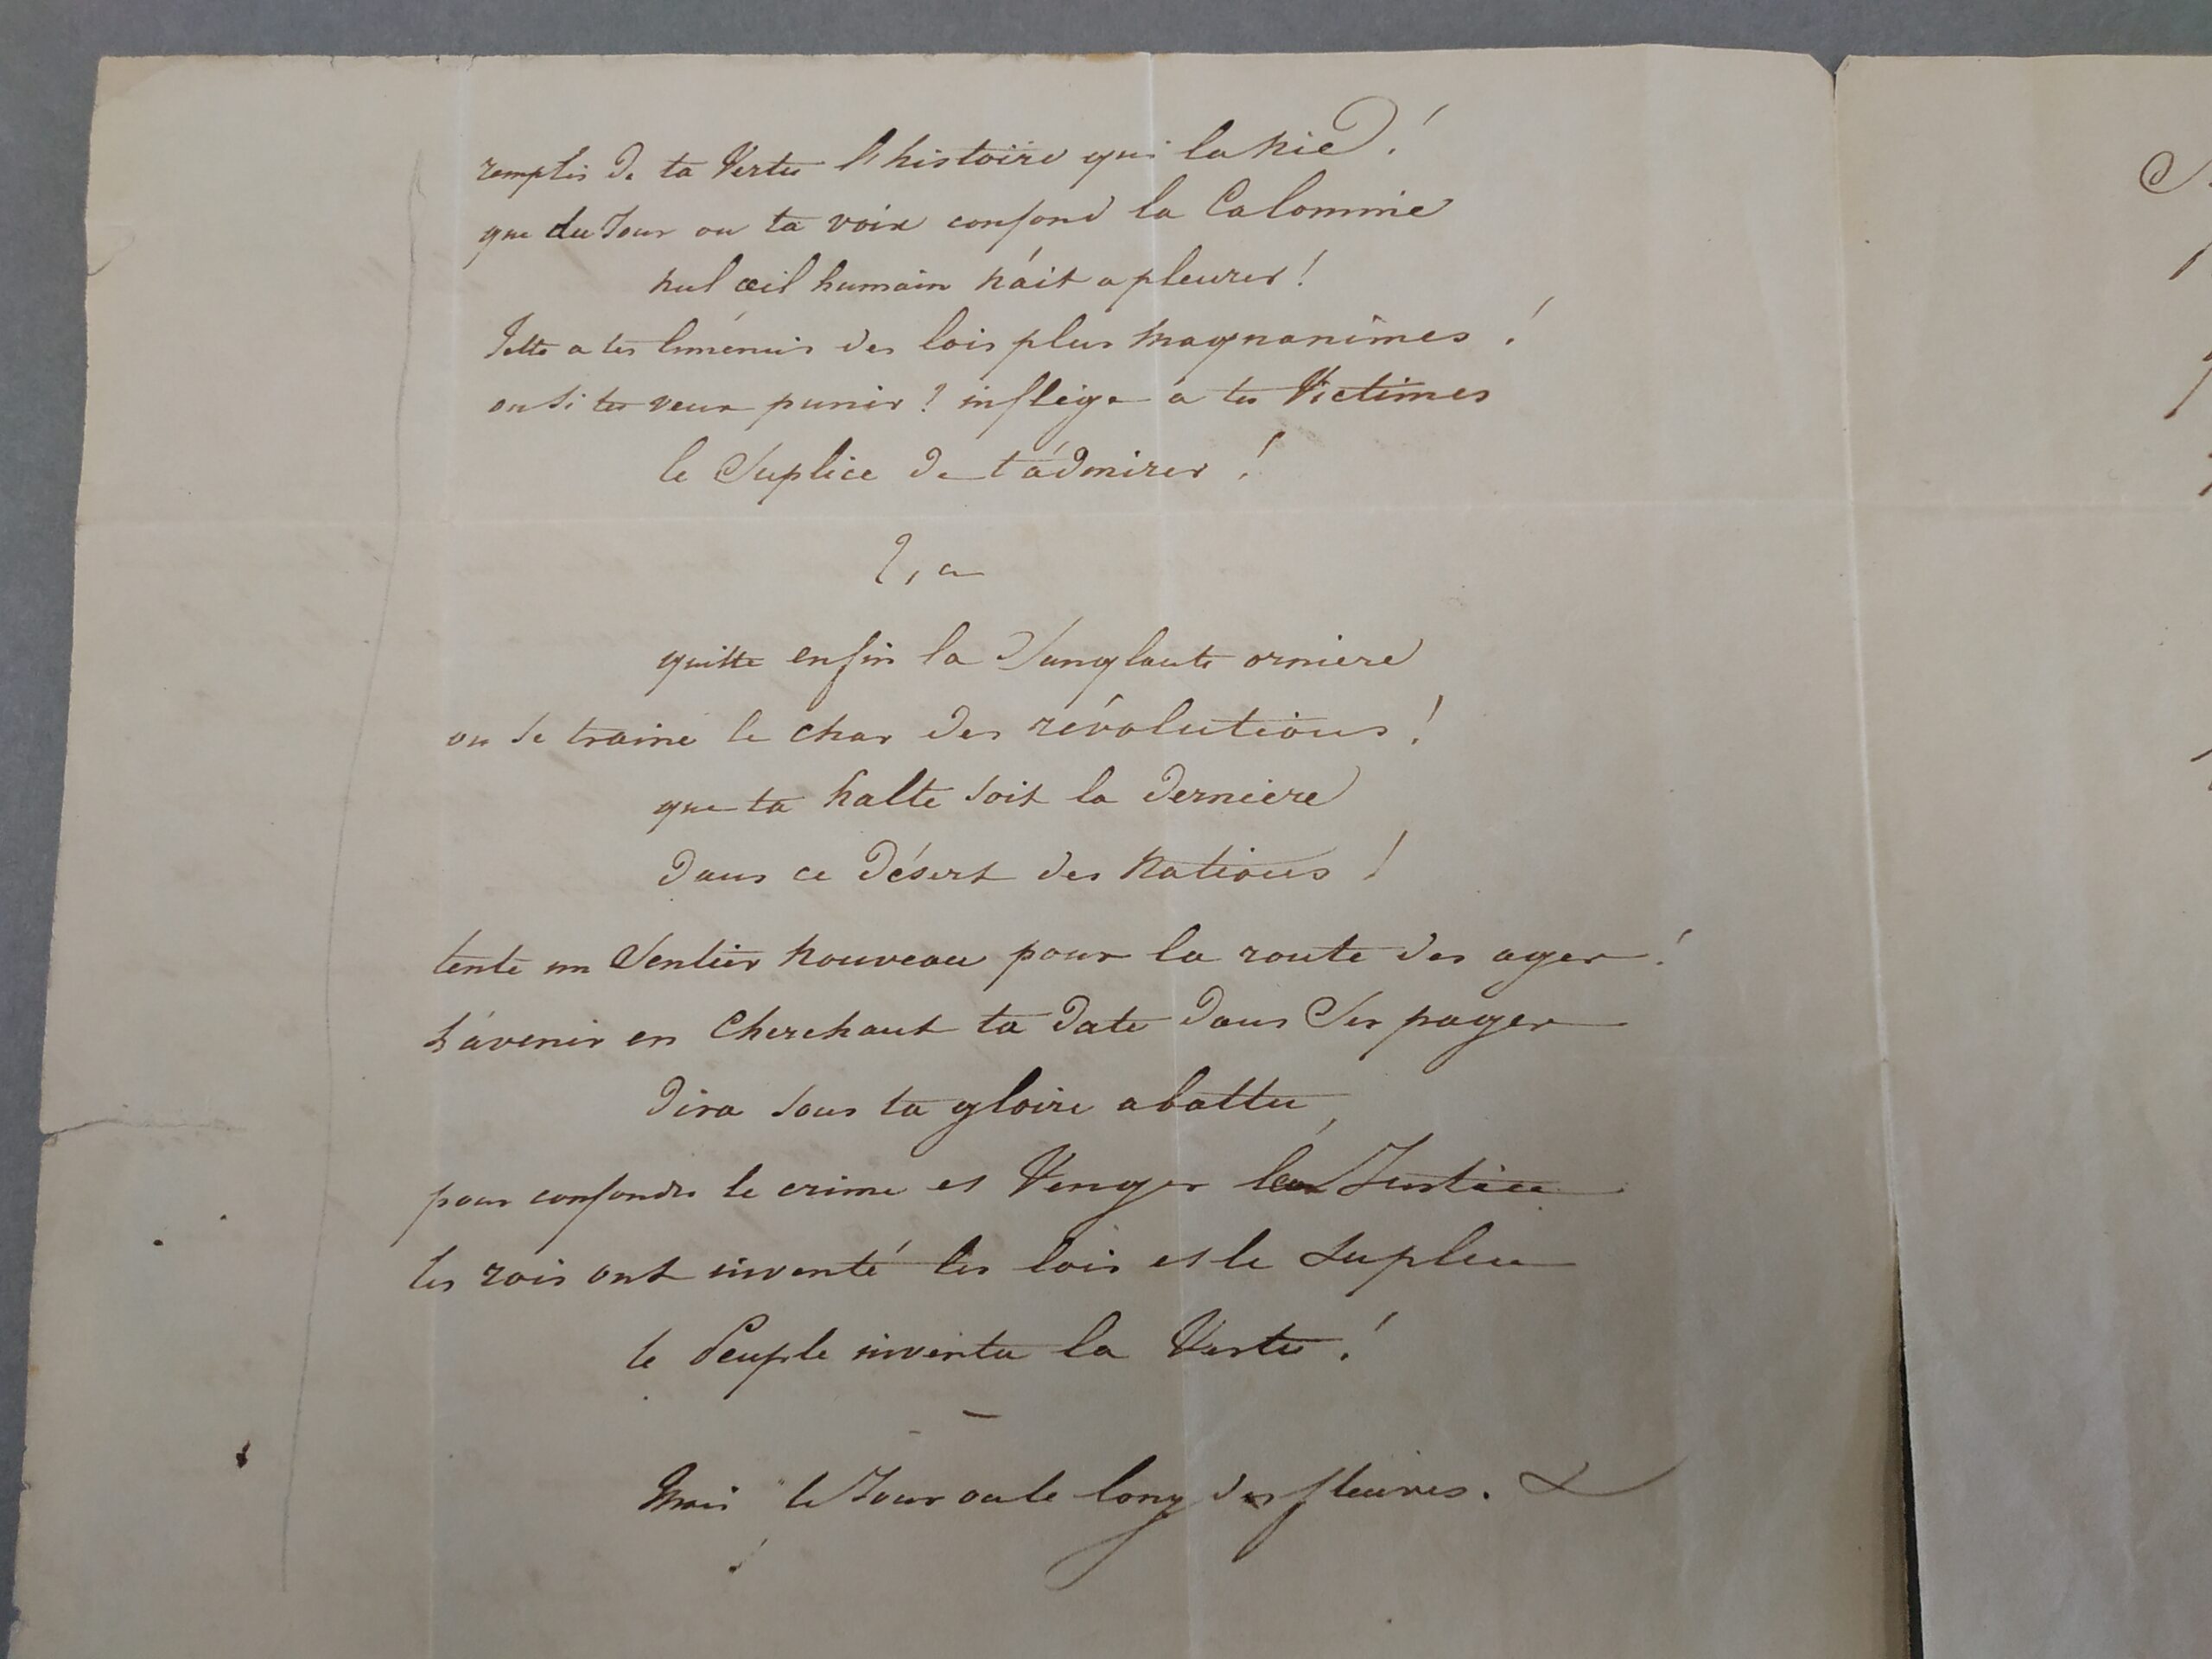 remplis de ta Vertu l'histoire qui la nie !
que du Jour ou ta voix confond la Calomnie
nul œil humain n'ait a pleurer !
Jette a tes Ennemis des lois plus magnanimes !
ou si tu veux punir ? inflige a tes Victimes
le Suplice de t'admirer !
2, a
quitte enfin la Sanglante orniere
ou se traine le char des révolutions !
que ta halte soit la derniere
dans ce désert des Nations !
tente un Sentier nouveau pour la route des ages !
L'avenir en Cherchant ta date dans Ses pages
dira sous ta gloire abattu,
pour confondre le crime et Venger la Justice
les rois ont inventé les lois et le suplice
le Peuple inventa la Vertu !
Mais le Jour ou le long des fleuves. &